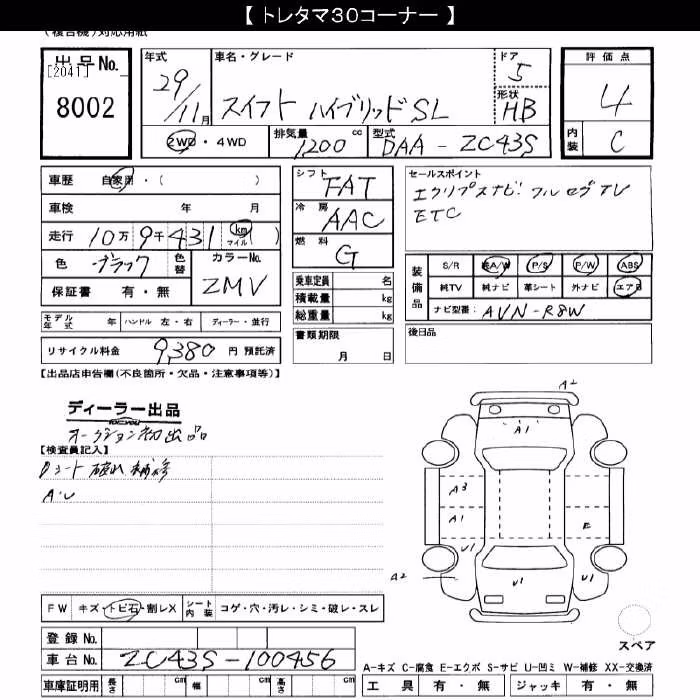 【 トレタマ30コーナー 】
(複合機)対応用紙
出品No.
[2041]
8002
年式
29/11月
車名・グレード
スイフト ハイブリッドSL
ドア
5
形状
HB
評価点
4
内装
C
2WD・4WD
排気量
1200 cc
型式
DAA - ZC43S
車歴 自家用・( )
車検 年 月
走行 10万9千431 km マイル ( )
色 ブラック 色替
カラーNo.
ZMV
保証書 有・無
モデル年式 年 ハンドル 左・右 ディーラー・並行
リサイクル料金 9,380 円 預託済
シフト
FAT
冷房
AAC
燃料
G
乗車定員 名
積載量 kg
総重量 kg
書類期限
月 日
セールスポイント
エクリプスナビ フルセグTV
ETC
装備品
S/R 純A/W P/S P/W ABS
純TV 純ナビ 革シート 外ナビ エアB
ナビ型番: AVN-R8W
後日品
【出品店申告欄(不良箇所・欠品・注意事項等)】
ディーラー出品
オークション初出品
【検査員記入】
Dシート 破れ補修
A・U
A2
A1
A3
A1
E
U1
U1
U1
A2
スペア
FW キズ・トビ石・割レX シート内装 コゲ・穴・汚レ・シミ・破レ・スレ
登録No.
車台No. ZC43S-100456
車庫証明用 長さ cm 幅 cm 高さ cm
A-キズ C-腐食 E-エクボ S-サビ U-凹ミ W-補修 XX-交換済
工具 有・無 ジャッキ 有・無